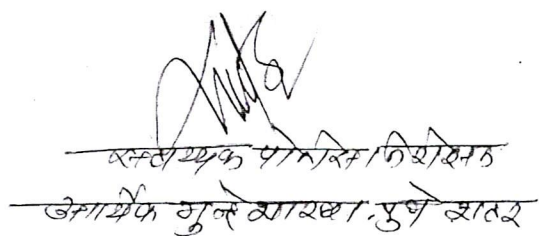 सहाय्यक पोलिस निरीक्षक
आर्थिक गुन्हे शाखा, पुणे शहर